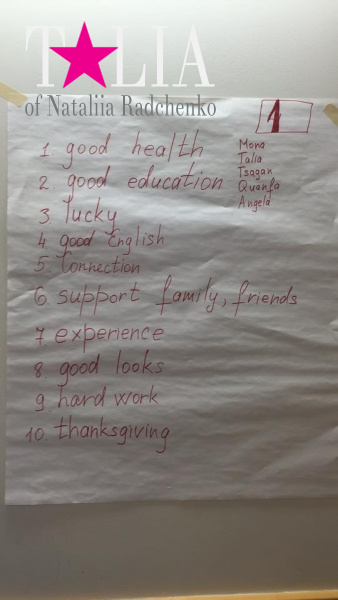 TALIA
of Nataliia Radchenko
1
Mona
Talia
Tsagan
Quanfa
Angela
1 good health
2. good education
3 lucky
4 good English
5 Connection
6 support family, friends
7 experience
8 good looks
9 hard work
10. thanksgiving